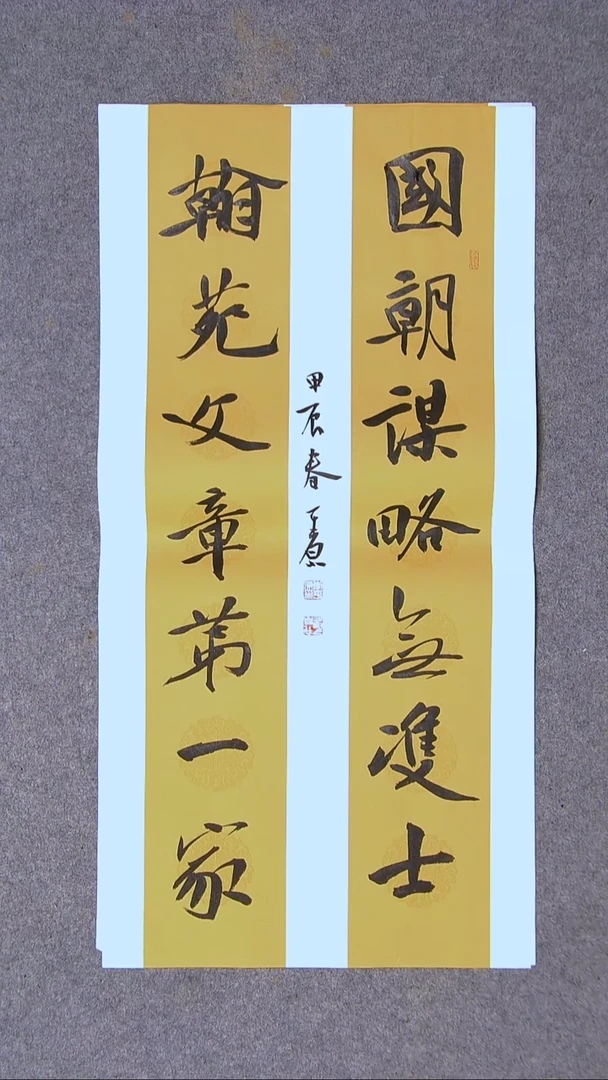 國朝謀略無雙士
翰苑文章第一家
甲辰春